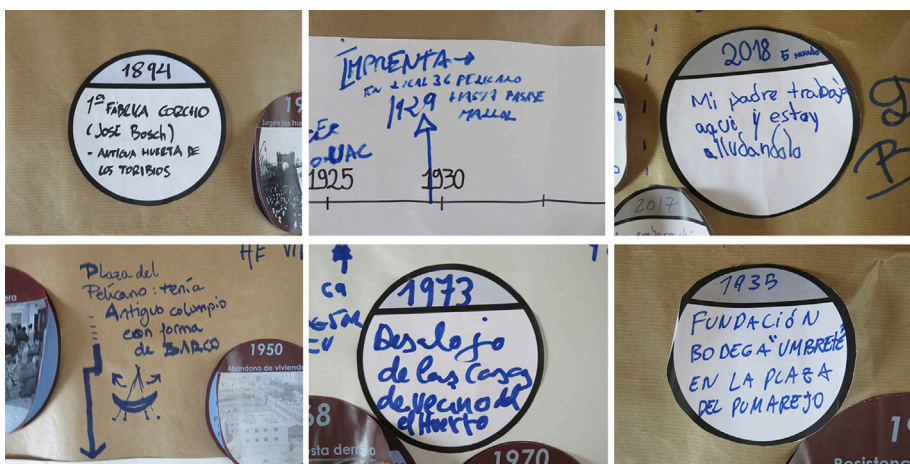 1894
1ª FÁBRICA CORCHO
(JOSÉ BOSCH)
- ANTIGUA HUERTA DE
LOS TORIBIOS
19
IMPRENTA →
EN LOCAL 36 PELICANO
1929 HASTA PADRE
1925
1930
2018
Mi padre trabaja
aquí y estoy
alludandolo
2017
Plaza del
Pelícano: tenía
Antiguo columpio
con forma
de BARCO
HE VI
1950
Abandono de viviend
1973
Desalojo
de las Casas
de Vecino del
el Huerto
68
sta der
1970
1935
FUNDACIÓN
BODEGA "UMBRETE"
EN LA PLAZA
DEL PUMAREJO
19
Resistenc